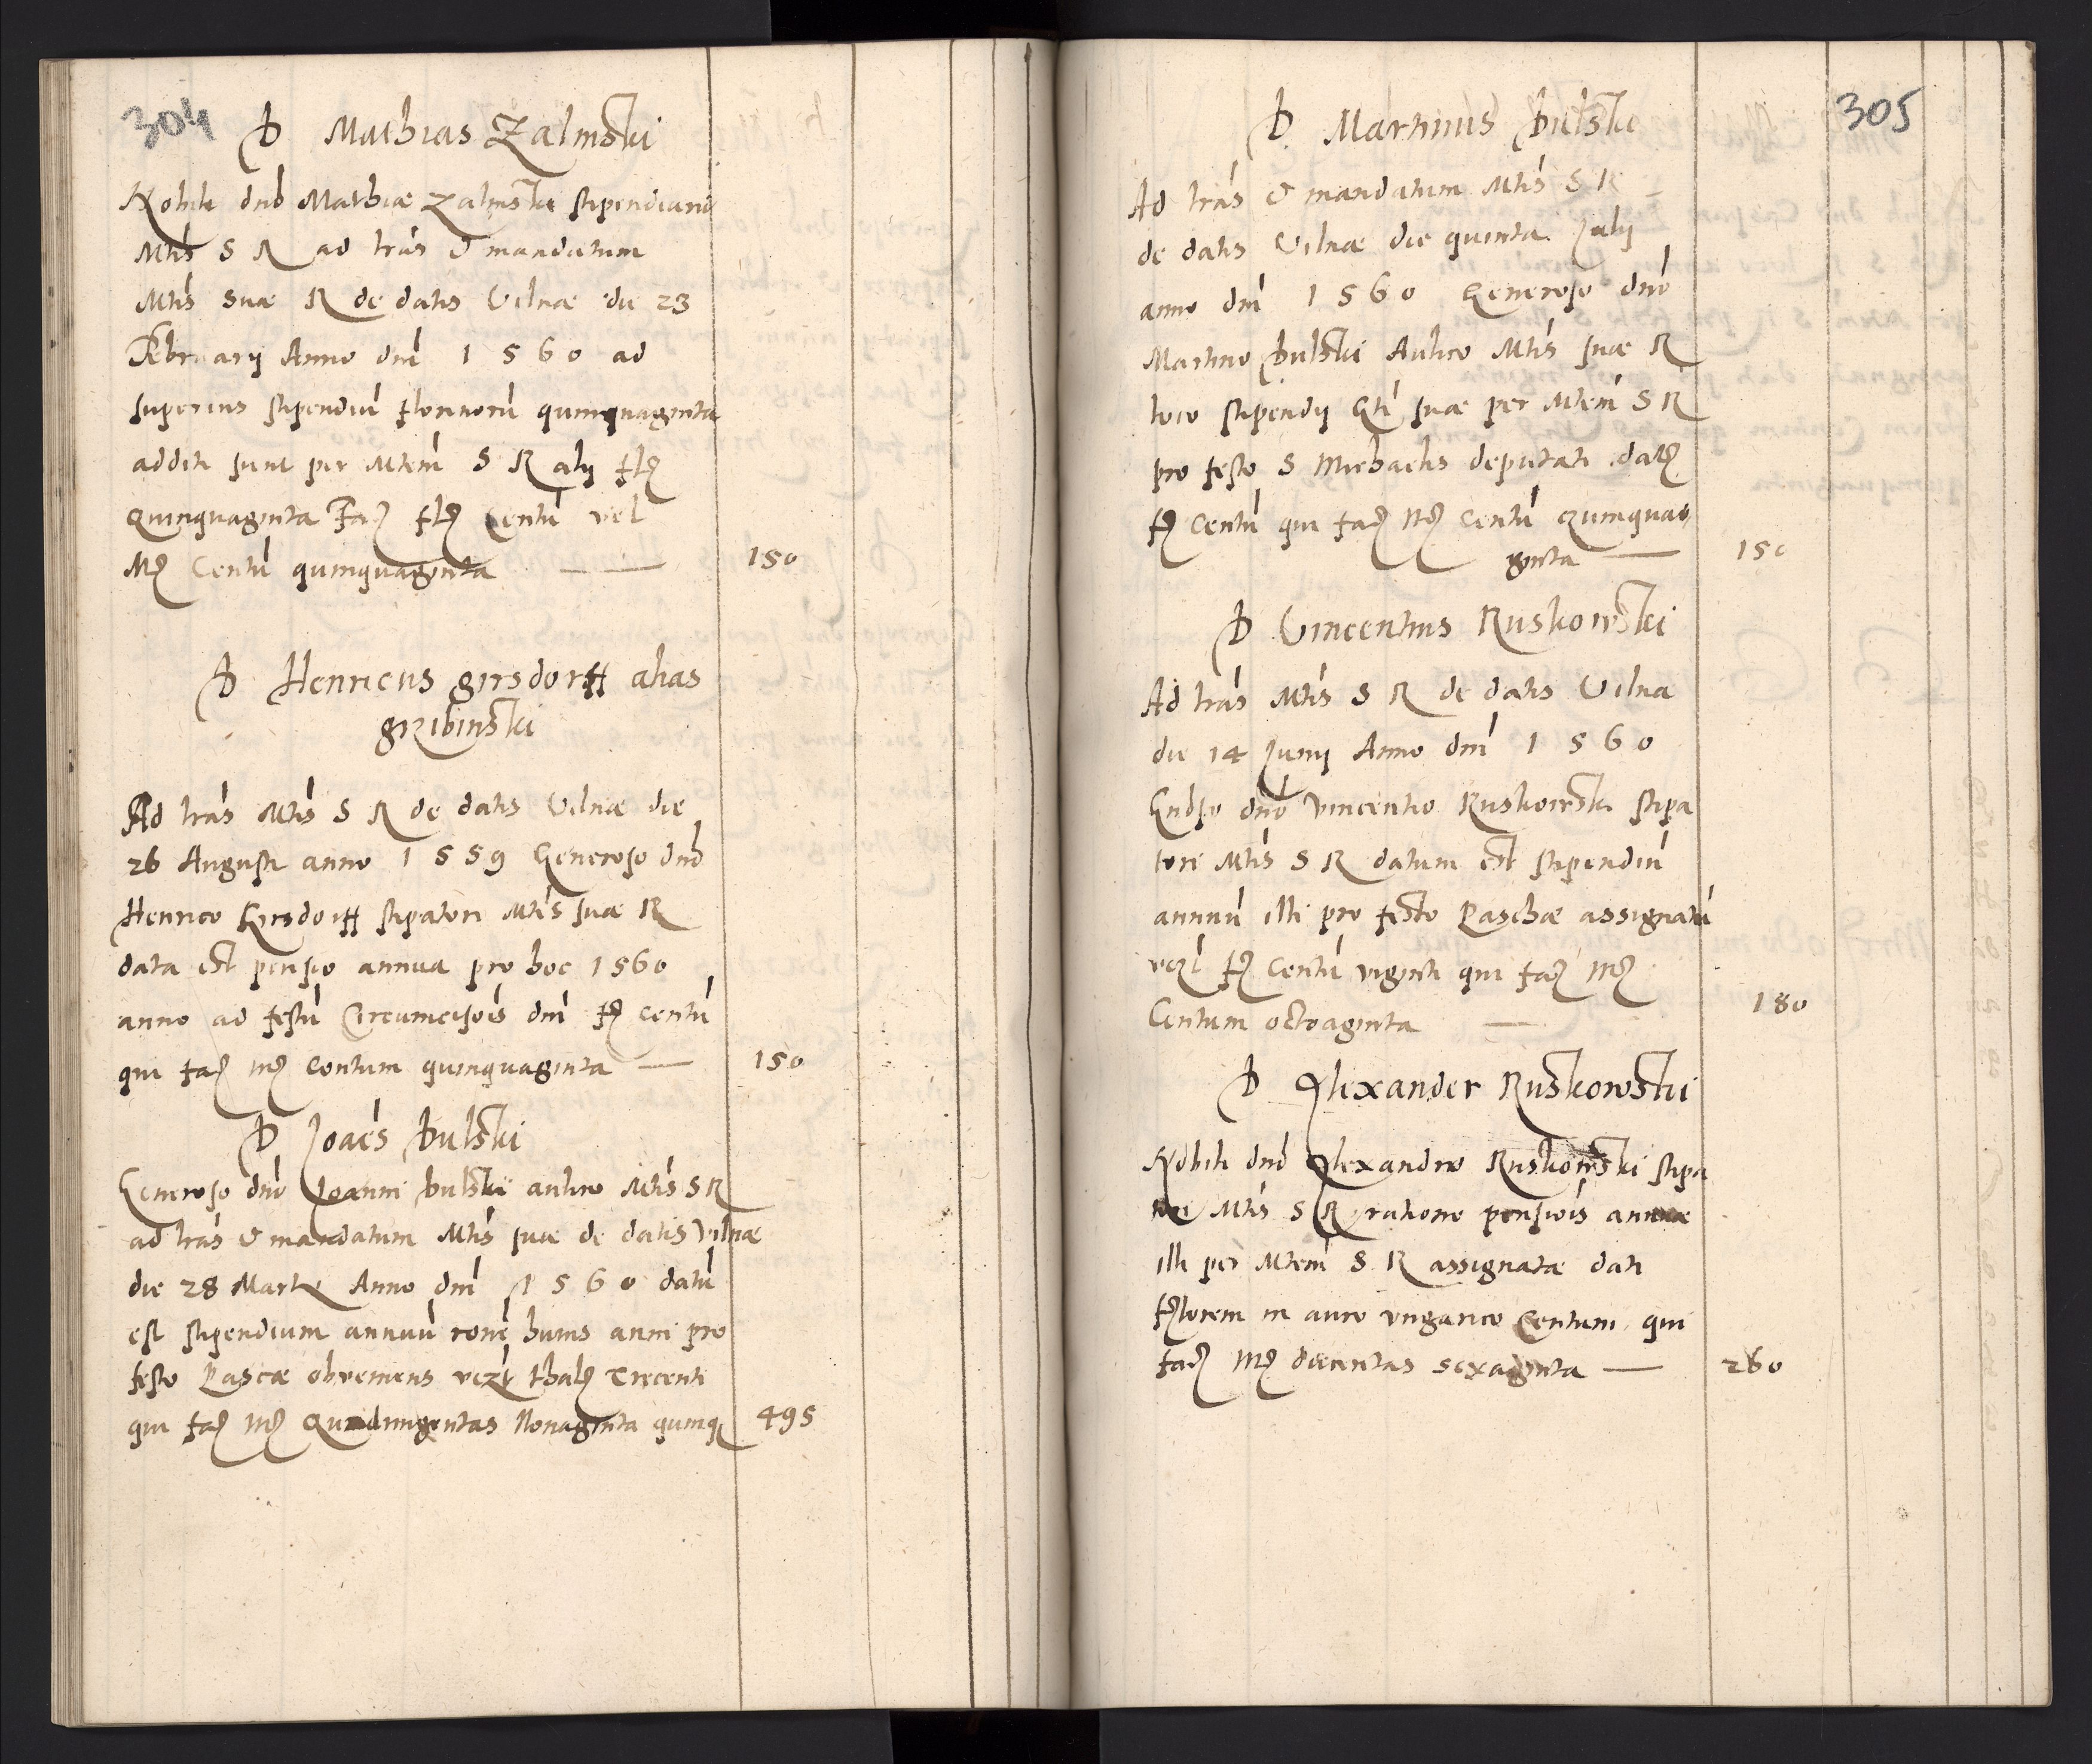 304
D Mathias Zalinski
Nobili dnō Mathiæ Zalinski stipendiario
Mtis S R ad lras & mandatum
Mtis Suæ R de datis Vilnæ die 23
Februarij Anno dni 1560 ad
superius stipendiū florinorū quinquaginta
additi sunt per Mtem S R alij fl
Quinquaginta Fac fl Centū vel
Mr Centū quinquaginta — 150
D Henricus girsdorff alias
grzibinski
Ad lras Mtis S R de datis Vilnæ die
26 Augusti anno 1559 Generoso dnō
Henrico Girsdorff stipatori Mtis suæ R
data est pensio annua pro hoc 1560
anno ad festū Circumcisōis dni fl centū
qui fac mr Centum quinquaginta — 150
D Joaēs Bulski
Generoso dnō Joanni bulski aulico Mtis S R
ad lras & mandatum Mtis suæ de datis Vilnæ
die 28 Martij Anno dni 1560 datū
est stipendium annuū rone huius anni pro
festo Pascæ obveniens vczl thal Trecenti
qui fac mr Quadringentas Nonaginta quinq 495
305
D. Martinus Bulski
Ad lras & mandatum Mtis S R
de datis Vilnæ die quinta Julij
anno dni 1560 Generoso dnō
Martino Bulski Aulico Mtis suæ R
loco stipendij Gti suæ per Mtem S R
pro festo S Michaelis deputati dat
fl Centū qui fac mr Centū Quinqua
ginta — 150
D Vincentius Ruskowski
Ad lras Mtis S R de datis Vilna
die 14 Junij Anno dni 1560
Gndso dnō Vincentio Ruskowski stipa
tori Mtis S R datum est stipendiū
annuū illi pro festo Paschæ assignatū
vczl fl Centū viginti qui fac mr
Centum octoaginta — 180
D Alexander Ruskowski
Nobili dnō Alexandro Ruskowski stipa
tori Mtis S R ratione pensiois annuæ
illi per Mtem S R assignatæ dati
fflorem in auro ungarico Centum qui
fac mr ducentas sexaginta — 260